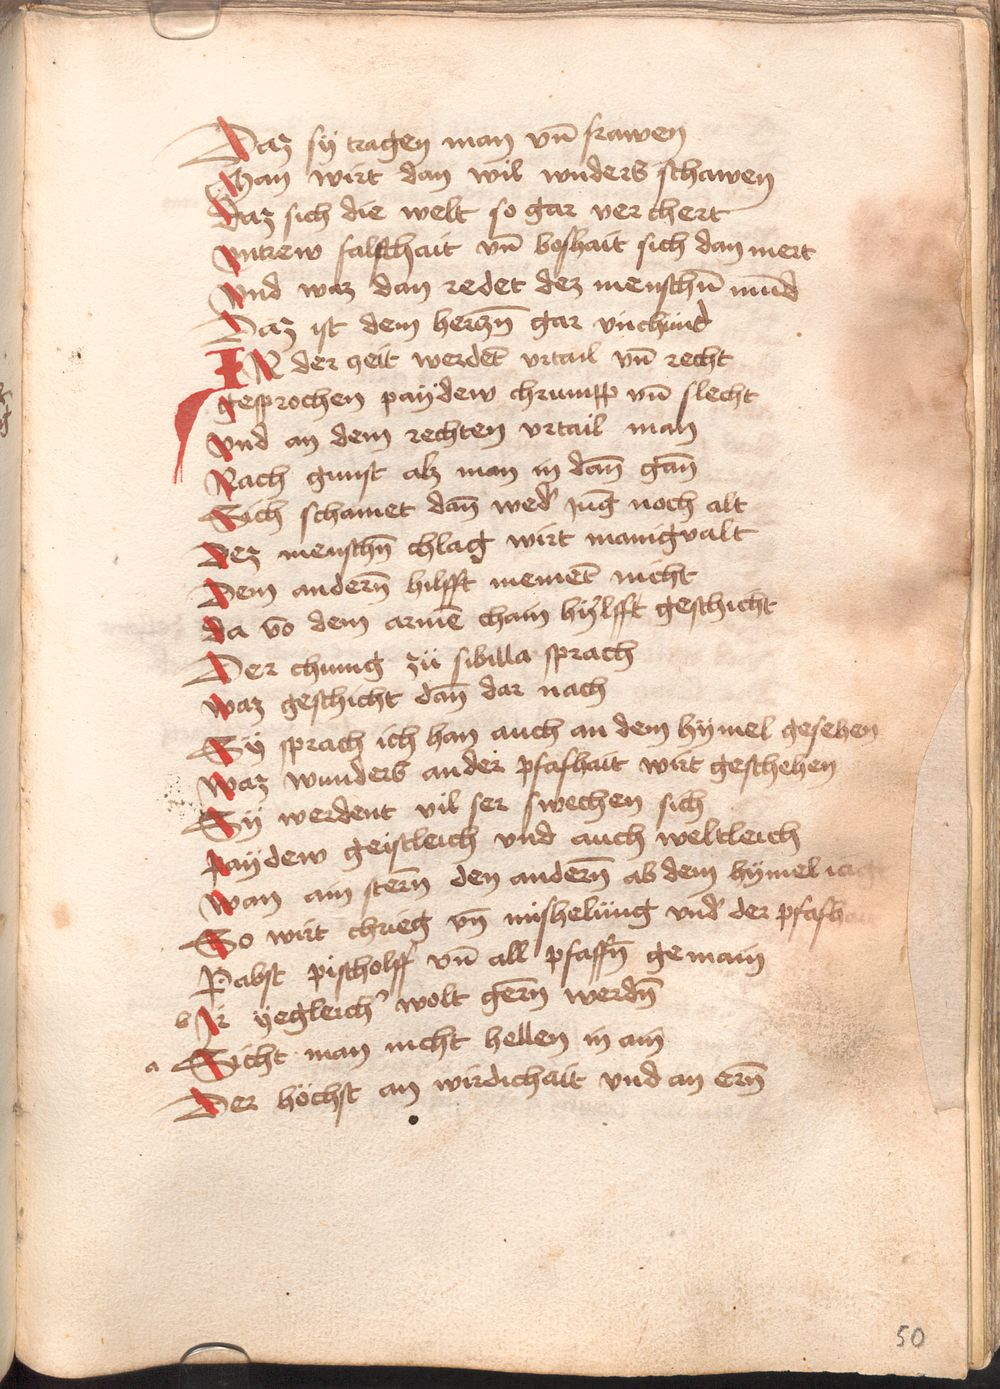 Daz sy tragen man vn̄ frawen
Man wirt dan wil wnders schawen
Daz sich die welt so gar verchert
vntrew falschait vn̄ boshait sich dan mert
vnd waz dan redet dez menschn̄ mūd
Daz ist dem herczn̄ gar vnchund
IN der zeit werdēt vrtail vn̄ recht
gesprochen paydew chrumpp vn̄ slecht
vnd an dem rechten vrtail man
Nach gunst alz man in dan̄ gan̄
Sich schamet dan̄ wed' jūg noch alt
Dez menschn̄ chlag wirt manigualt
Dem andern̄ hilfft niemēt nicht
da vō dem armē chain hylfft geschicht
Der chunig zü sibilla sprach
waz geschicht dan̄ dar nach
Sy sprach ich han auch an dem hymel gesehen
waz wunders an der pfafhait wirt geschehen
Sy werdent vil ser swechen sich
paydew geistleich vnd auch weltleich
wan ain stern̄ den andern̄ ab dem hymel
So wirt chrieg vn̄ mishelüng vnd' der
Pabst pischolff vn̄ all pfaffn̄ gemain
b Ir yegleich' wolt gern̄ werdn̄
a Sicht man nicht hellen in ain
Der höchst an wirdichait vnd an ern̄
50